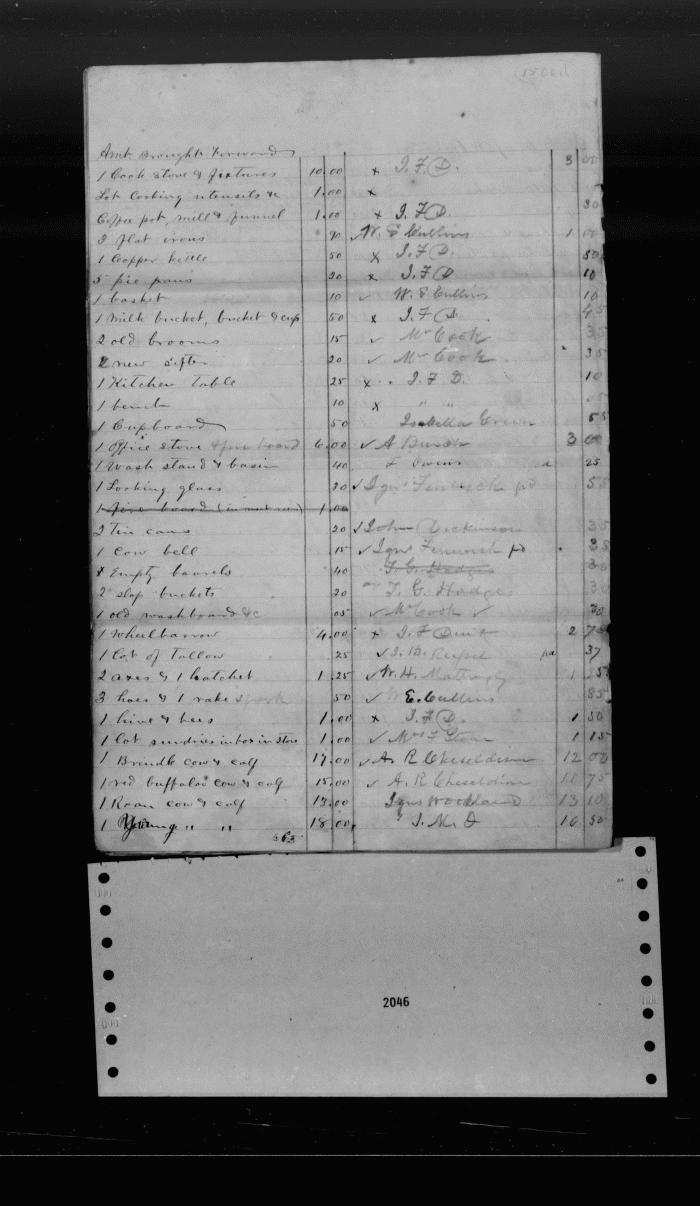 Amt Brought Forward
1 Cook stove & fixtures 10.00 x J. F. D. 3 00
Lot cooking utensils &c 1.00 x
Coffee pot, mill & funnel 1.00 x J. F. D. 30
3 flat irons 90 W. E Cullins 1 00
1 Copper kettle 50 x J. F. D. 50
5 pie pans 20 x J. F D 10
1 basket 10 ✓ W. E Cullins 10
1 milk bucket, bucket & cup 50 x J. F. D. 45
2 old brooms 15 ✓ Mr Cook 35
2 new sifter 20 ✓ Mr Cook 35
1 Kitchen Table 25 x J. F D. 10
1 bench 10 x " "
1 Cupboard 50 Isabella Green 55
1 Office stove & fire board 6.00 ✓ A Burch 3 00
1 Wash stand & basin 40 F Owens 25
1 Looking glass 20 ✓ Igns Fenwick pd 55
1 fire board 1.00
2 Tin cans 20 ✓ John Dickinson 35
1 Cow bell 15 ✓ Igns Fenwick pd 35
Empty barrels 40 T. G. Hodges 30
2 slop buckets 20 T. G. Hodges 30
1 old washboard &c 05 ✓ Mr Cook ✓ 30
1 Wheelbarrow 4.00 x J. F 2
1 lot of Tallow 25 ✓ pd 37
2 axes & 1 hatchet 1.25 ✓ W. H. Mattingly 1
3 hoes & 1 rake 50 ✓ W E. Cullins 85
1 hive & bees 1.00 x J. F. D. 1 50
1 lot sundries in box in store 1.00 ✓ Mrs F Stone 1 15
1 Brindle cow & calf 17.00 ✓ A. R Cheseldine 12 00
1 red buffalo cow & calf 15.00 ✓ A. R Cheseldine 11 75
1 Roan cow & calf 13.00 Igns Woodland 13 10
1 Young " " 18.00 J. M. D 16 50
2046